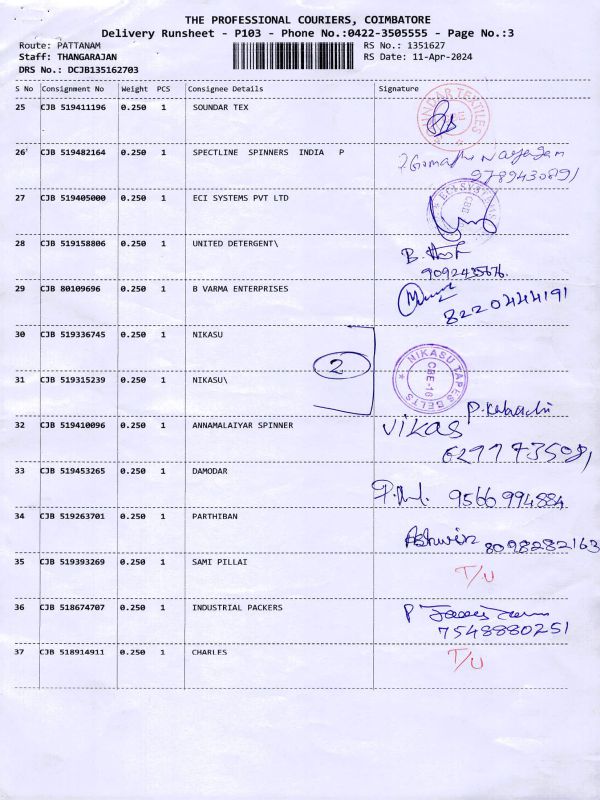 THE PROFESSIONAL COURIERS, COIMBATORE
Delivery Runsheet - P103 - Phone No.:0422-3505555 - Page No.:3
Route: PATTANAM RS No.: 1351627
Staff: THANGARAJAN RS Date: 11-Apr-2024
DRS No.: DCJB135162703
S No Consignment No Weight PCS Consignee Details Signature
25 CJB 519411196 0.250 1 SOUNDAR TEX
26 CJB 519482164 0.250 1 SPECTLINE SPINNERS INDIA P
9789430891
27 CJB 519405000 0.250 1 ECI SYSTEMS PVT LTD
28 CJB 519158806 0.250 1 UNITED DETERGENT\
29 CJB 80109696 0.250 1 B VARMA ENTERPRISES
8220444191
30 CJB 519336745 0.250 1 NIKASU
2
NIKASU TAPES BELTS CBE-16
31 CJB 519315239 0.250 1 NIKASU\
32 CJB 519410096 0.250 1 ANNAMALAIYAR SPINNER Vikas
33 CJB 519453265 0.250 1 DAMODAR
9566994884
34 CJB 519263701 0.250 1 PARTHIBAN
Ashwin 8098282163
35 CJB 519393269 0.250 1 SAMI PILLAI T/U
36 CJB 518674707 0.250 1 INDUSTRIAL PACKERS
7548880251
37 CJB 518914911 0.250 1 CHARLES T/U